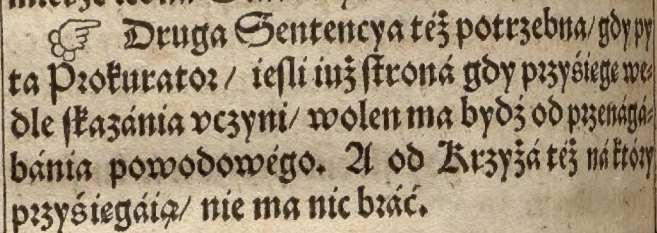 ☞ Druga Sentencya też potrzebna/ gdy py
ta Prokurator/ ieſli iuż ſtroná gdy przyśięgę we⸗
dle ſkazánia vczyni/ wolen ma bydź od przenágá⸗
bánia powodowégo. A od Krzyżá też ná który
przyśięgáią/ nie ma nic bráć.